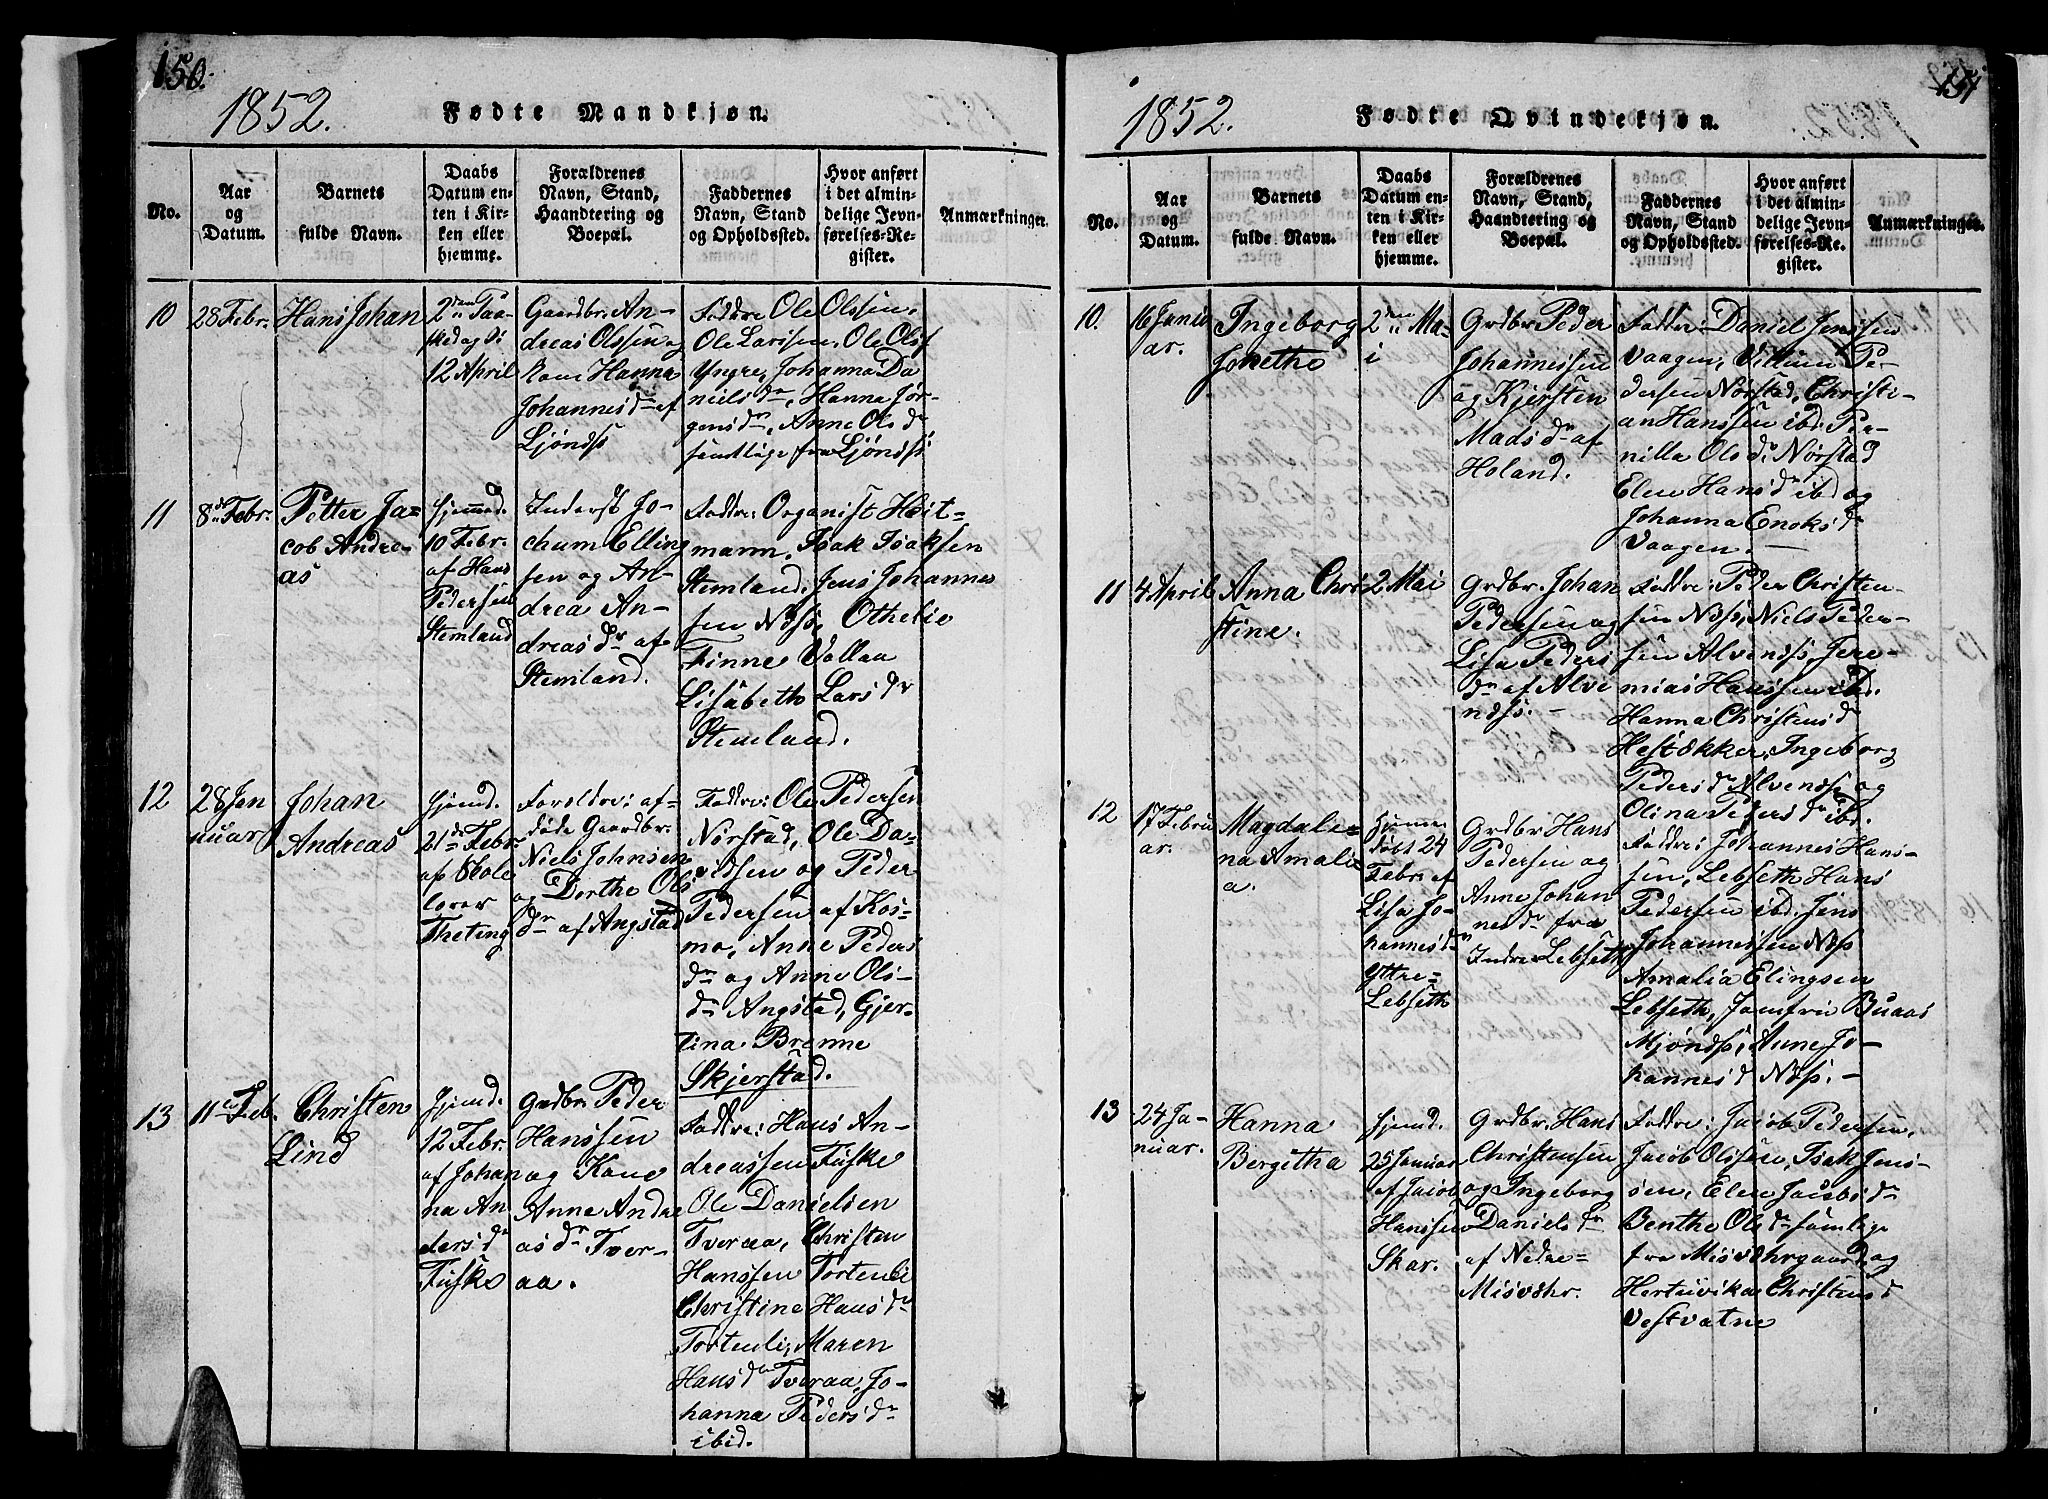 150.
1852.
Fødte Mandkjøn.
No.
Aar
og
Datum.
Barnets
fulde Navn.
Daabs
Datum en-
ten i Kir-
ken eller
hjemme.
Forældrenes
Navn, Stand,
Haandtering og
Boepæl.
Faddernes
Navn, Stand
og Opholdssted.
Hvor anført
i det almin-
delige Jevn-
førelses-Re-
gister.
Anmærkninger.
10
28 Febr.
Hans Johan
2den Paa-
skedag d:
12 April
Gaardbr. An-
dreas Olssen og
kone Hanna
Johannesdr af
Ljøndss
Faddre Ole Olssen,
Ole Larssen, Ole Ols
Yngre, Johanna Da
nielsdr, Hanna Jør-
gensdr, Anne Olsdr
semtlige fra Ljøndss
11
8de Febr.
Petter Ja-
cob Andre-
as
hjemmed.
10 Febr.
af Hans
Pedersen
Stemland
Inderst Jo-
chum Elling
sen og An-
drea An-
dreasdr af
Stemland.
Faddre: Organist Heit-
mann, Isak Isaksen
Stemland, Jens Johannes
sen Næss, Othelie
Finne Vollaa
Lisabeth Larsdr
Stemland.
12
28 Jan
nuar
Johan
Andreas
hjemd.
21de Febr.
af Skole
lærer
Theting
Foroldre: af-
døde Gaardbr.
Niels Johnsen
og Dorthe Ols
dr af Angstad
Faddre: Ole Pedersen
Nørstad, Ole Da-
vidsen og Peder
Pedersen af Kos-
mo, Anne Peders
dr og Anne Ols-
dr Angstad, Gjer-
tina Brenne
Skjerstad.
13
11te Feb.
Christen
Lind
hjemd.
12 Febr.
af Johan
na An
dersdr
Fuske
Grdbr. Peder
Hanssen
og Kone
Anne Andre
asdr Tver-
aa.
Faddre: Hans An-
dreassen Fuske
Ole Danielsen
Tveraa, Christen
Hanssen Tortenli
Christine Hansdr
Tortenli, Maren
Hansdr Tveraa, Jo-
hanna Pedersdr
ibid.
151
1852.
Fødte Qvindekjøn.
No.
Aar
og
Datum.
Barnets
fulde Navn.
Daabs
Datum en-
ten i Kir-
ken eller
hjemme.
Forældrenes
Navn, Stand,
Haandtering og
Boepæl.
Faddernes
Navn, Stand
og Opholdssted.
Hvor anført
i det almin-
delige Jevn-
førelses-Re-
gister.
Anmærkninger.
10.
16 Janu
ar.
Ingeborg
Jonetho
2den Ma-
i
Grdbr Peder
Johannessen
og Kjersten
Madsdr af
Holand.
Faddre: Daniel Jenssen
Vaagen, Villum Pe-
dersen Nørstad, Christi-
an Hanssen ibd: Per-
nilla Olsdr Nørstad
Elen Hansdr ibd og
Johanna Enoksdr
Vaagen.
11
4 April
Anna Chri
stine.
2 Mai
Grdbr. Johan
Pedersen og
Lisa Peders
dr af Alve
ndss.
Faddre: Peder Christen-
sen Næss, Niels Peder-
sen Alvendss, Jere-
mias Hanssen ibd.
Hanna Christensdr
Hestækker, Ingeborg
Pedersdr Alvendss og
Olina Pedersdr ibd.
12
17 Febru
ar.
Magdale-
na Amalie
a.
døbt 24
Febr. af
Lisa Jo-
hannesdr
Yttre-
Lebseth
Grdbr Hans
Pedersen og
Anne Johan
nesdr fra
Indre Lebseth
Faddre: Johannes Hans-
sen, Lebseth Hans
Pedersen ibd. Jens
Johannessen Næss
Amalia Elingsen
Lebseth, Jomfru Buaas
Mjøndss, Anne Jo-
hannesd Næss.
13
24 Ja-
nuar.
Hanna
Bergitha
hjemd.
25 Januar
af Jacob
Hanssen
Skar.
Grdbr. Hans
Christensen
og Ingeborg
Danielsdr
af Nedre-
Misvær.
Faddre: Jacob Pedersen,
Jacob Olssen, Isak Jens-
sen, Elen Jacobsdr
Benthe Olsdr samlige
fra Misværgaard og
Hertuvika Christensd
Vestvatne